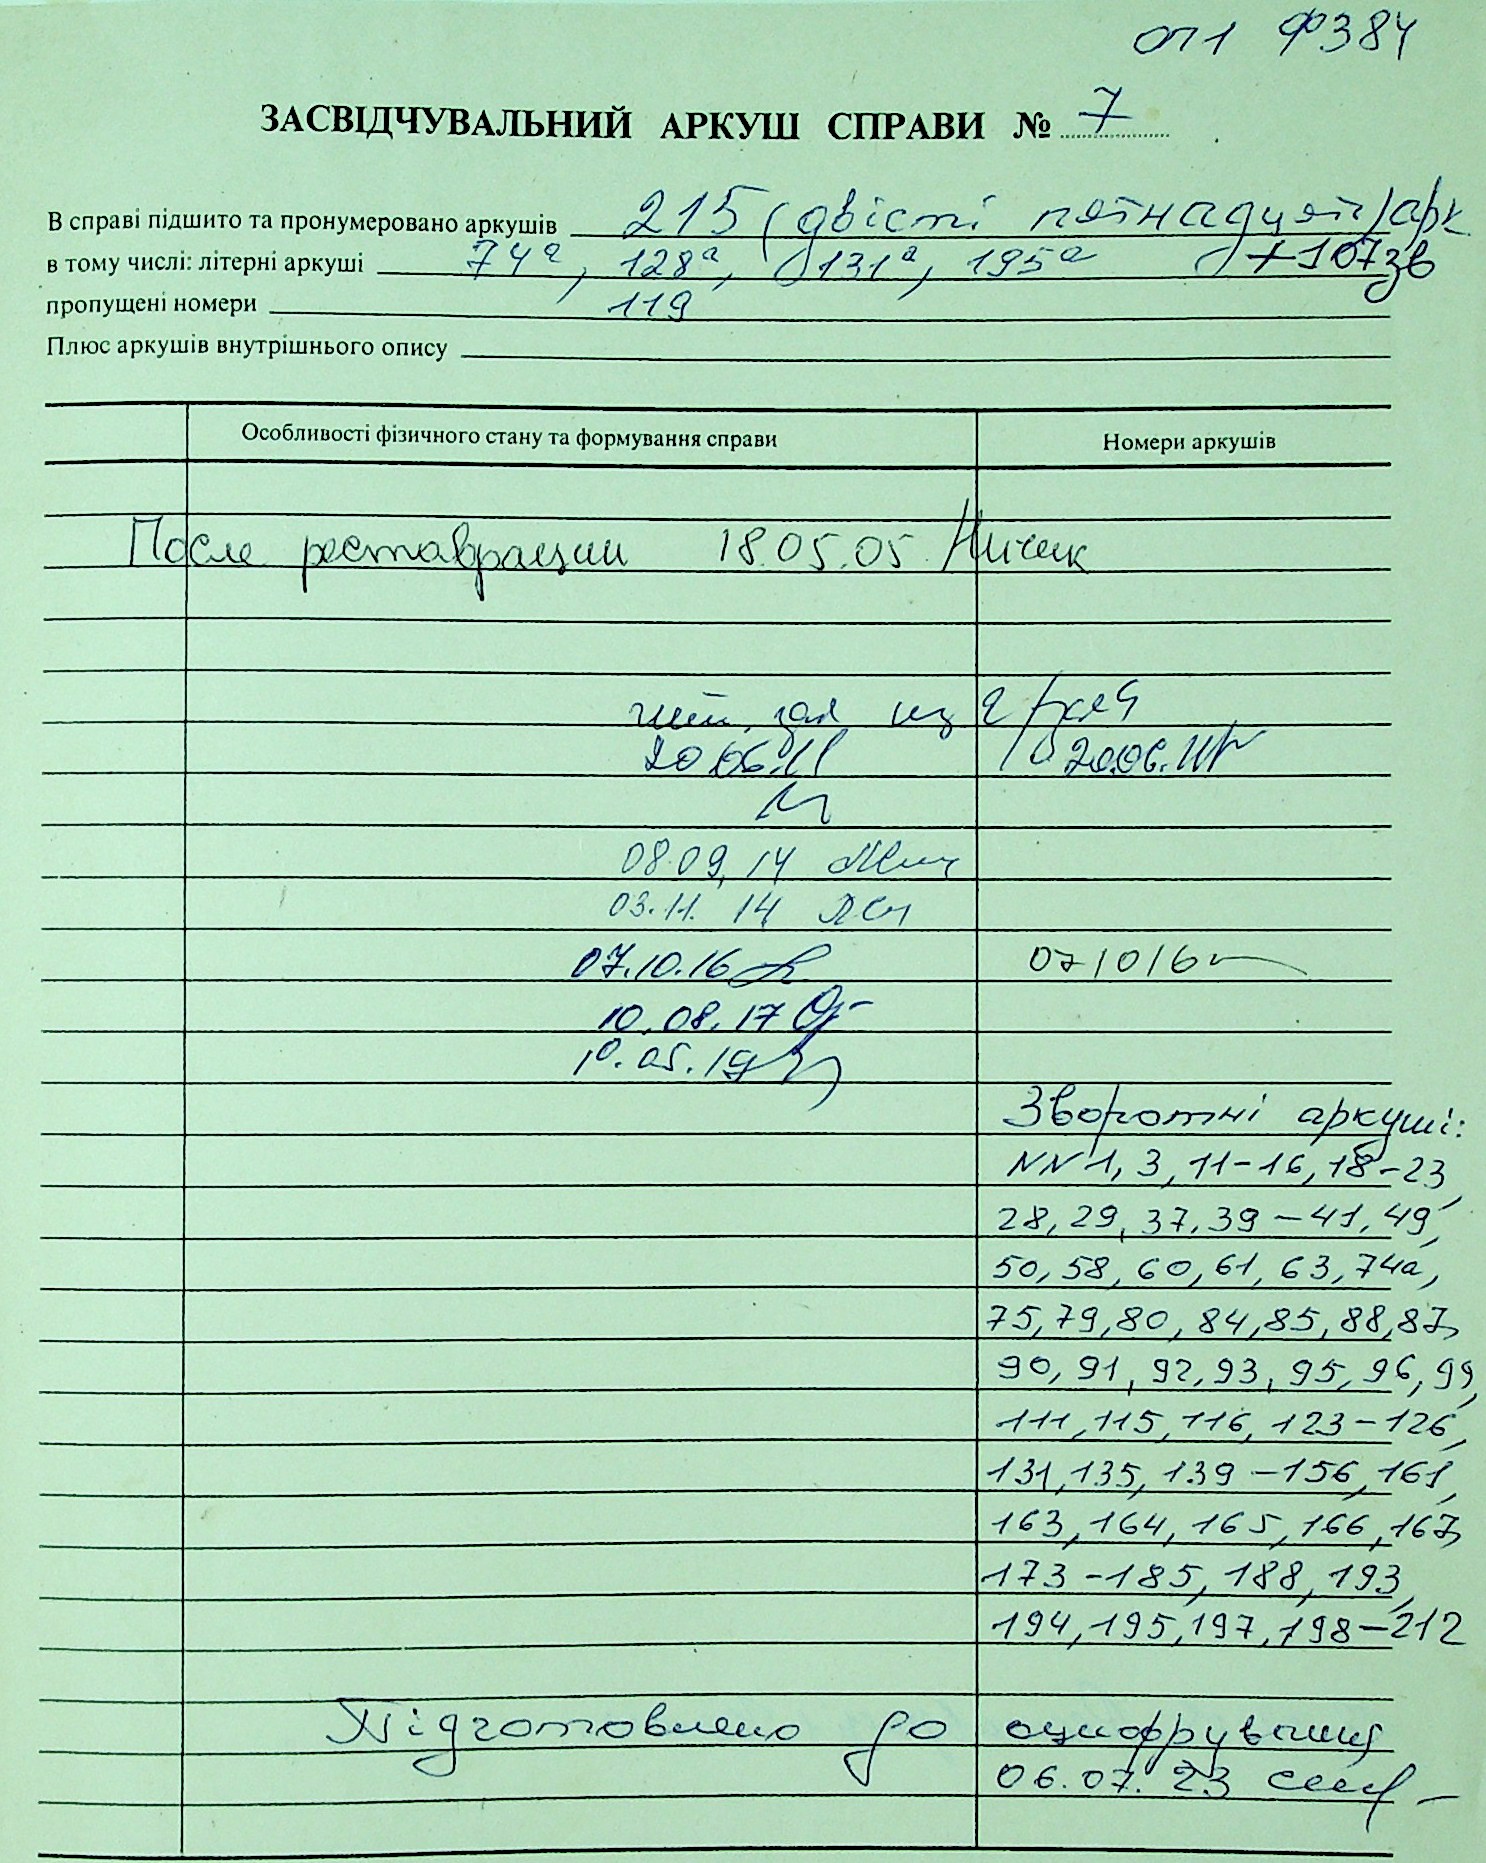 оп 1 Ф384
ЗАСВІДЧУВАЛЬНИЙ АРКУШ СПРАВИ № 7
В справі підшито та пронумеровано аркушів 215 (двісті пятнадцять) арк.
в тому числі: літерні аркуші 74а, 128а, 131а, 195а + 107зв
пропущені номери 119
Плюс аркушів внутрішнього опису
Особливості фізичного стану та формування справи Номери аркушів
После реставрации 18.05.05
чит. зал из
20.06.11 20.06.11
08.09.14
03.11.14
07.10.16 071016
10.08.17
10.05.19
Зворотні аркуші:
NN 1, 3, 11-16, 18-23,
28, 29, 37, 39-41, 49,
50, 58, 60, 61, 63, 74а,
75, 79, 80, 84, 85, 88, 87,
90, 91, 92, 93, 95, 96, 99,
111, 115, 116, 123-126,
131, 135, 139-156, 161,
163, 164, 165, 166, 167,
173-185, 188, 193,
194, 195, 197, 198-212
Підготовлено до оцифрування
06.07.23